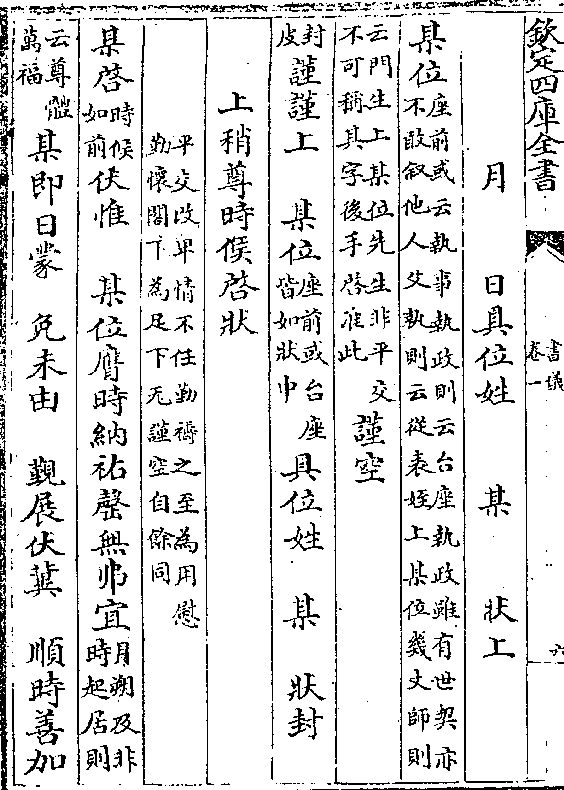 欽定四庫全書
書儀
卷一
六
月 日具位姓 某 狀上
某位座前或云執事執政則云台座執政雖有世契亦
不敢叙他人父執則云從表姪上某位幾丈師則
云門生上某位先生非平交
不可稱其字後手啓准此 謹空
封皮謹謹上 某位座前或台座皆如狀中具位姓 某 狀封
上稍尊時候啓狀
平交改卑情不任勤禱之至為用慰
勤懷閣下為足下无謹空自餘同
某啓時候如前伏惟 某位膺時納祐罄無弗宜月朔及非時起居則
云尊體萬福某即日蒙 免未由 覿展伏冀 順時善加